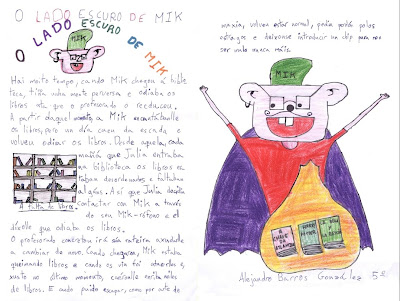 O LADO ESCURO DE MIK
O LADO ESCURO DE MIK
MIK
Hai moito tempo, cando Mik chegou á biblio
teca, tiña unha mente perversa e odiaba os
libros ata que o profesorado o reeducou.
A partir daquel Mik encantábanlle
os libros, pero un día caeu da escada e
volveu odiar os libros. Desde aquela, cada
mañá que Julia entraba
na biblioteca os libros es
taban desordenados e faltaban
algúns. Así que Julia decidiu
contactar con Mik a través
do seu Mik-éfono e el
A falta de libros.
díxolle que odiaba os libros.
O profesorado concretou irá axudalle
a cambiar de novo. Cando chegaron, Mik estaba
queimando libros e cando os ía tirar
xusto no último momento, caéronlle enriba miles
de libros. E cando puido escapar, como por arte de
maxia, volveu estar normal, pediu perdón polos
estragos e deixouse introducir un chip para non
ser malo nunca máis.
MIK
Alejandro Barros González 5º